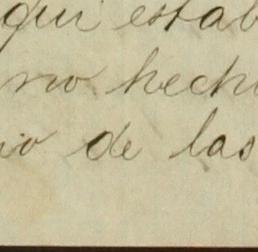 qui estab
no hech
io de las